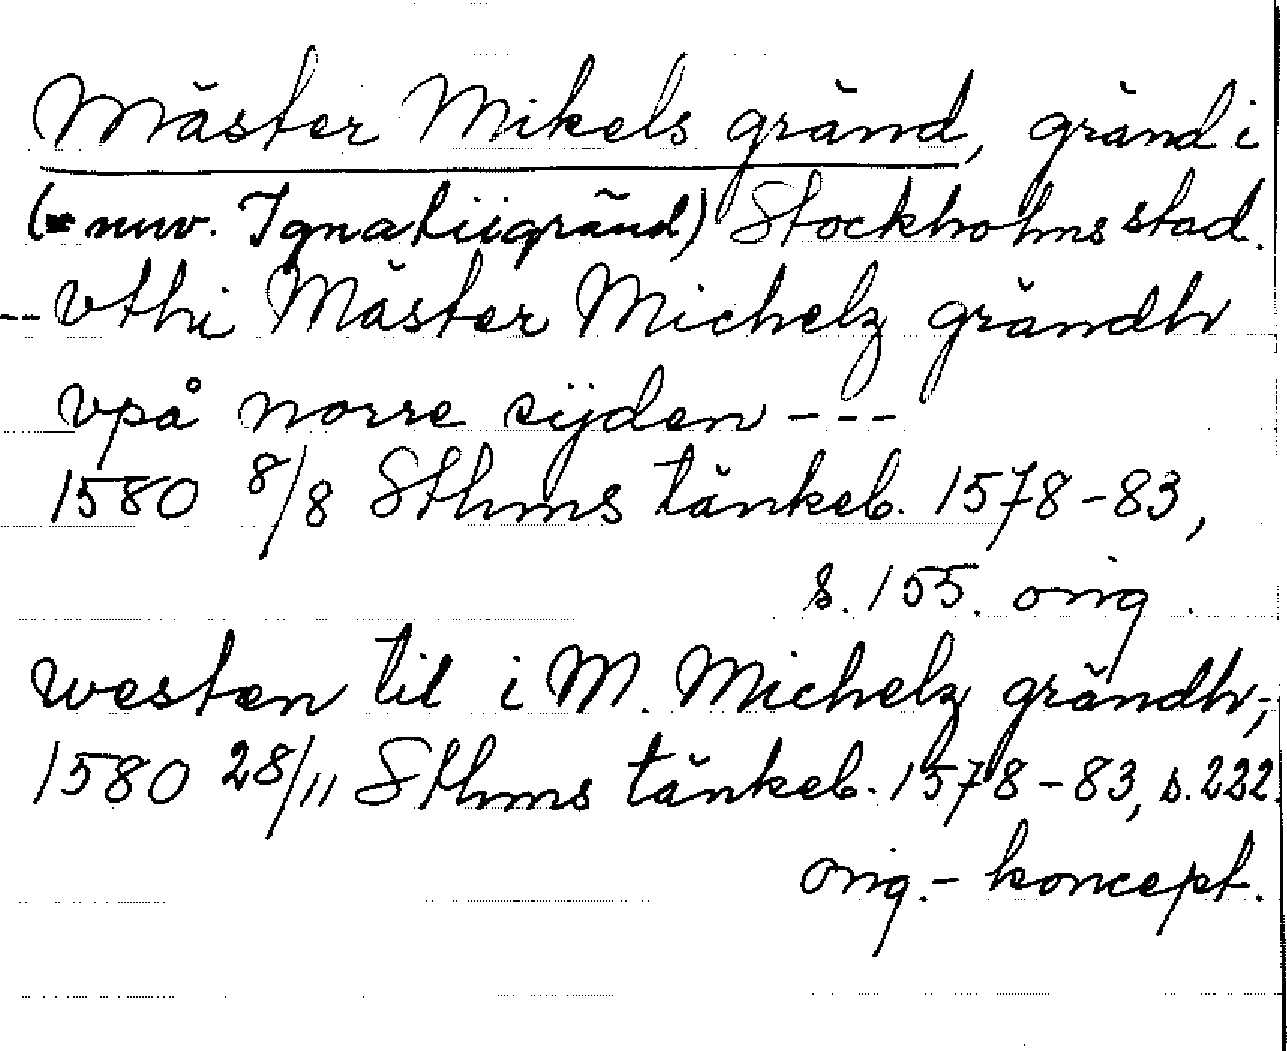 Mäster Mikels gränd, gränd i
(= nuv. Ignatiigränd) Stockholms stad.
-- vthi Mäster Michelz grändh
vpå norre sijden ---
1580 8/8 Sthms tänkeb. 1578-83,
s. 155. orig.
westen til i M. Michelz grändh,-
1580 28/11 Sthms tänkeb. 1578-83, s. 232.
orig.- koncept.